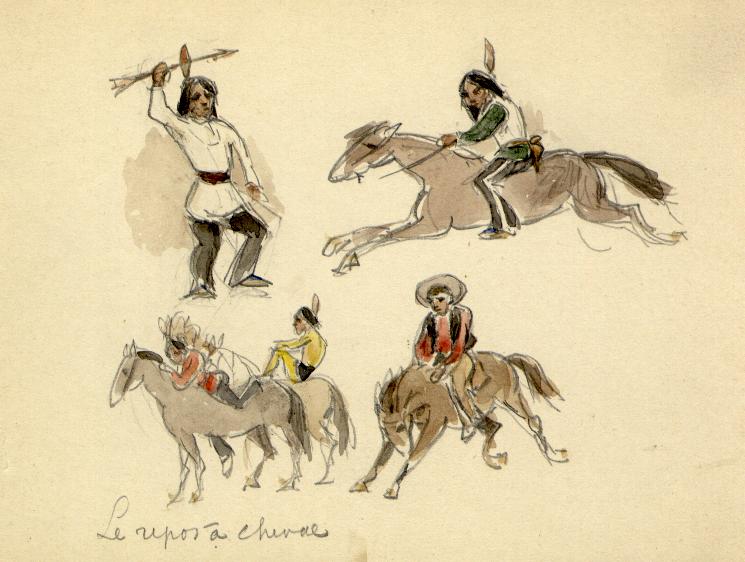 Le repos à cheval